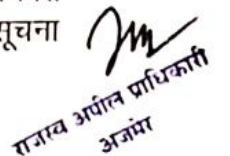 सूचना
राजस्व अपील प्राधिकारी
अजमेर